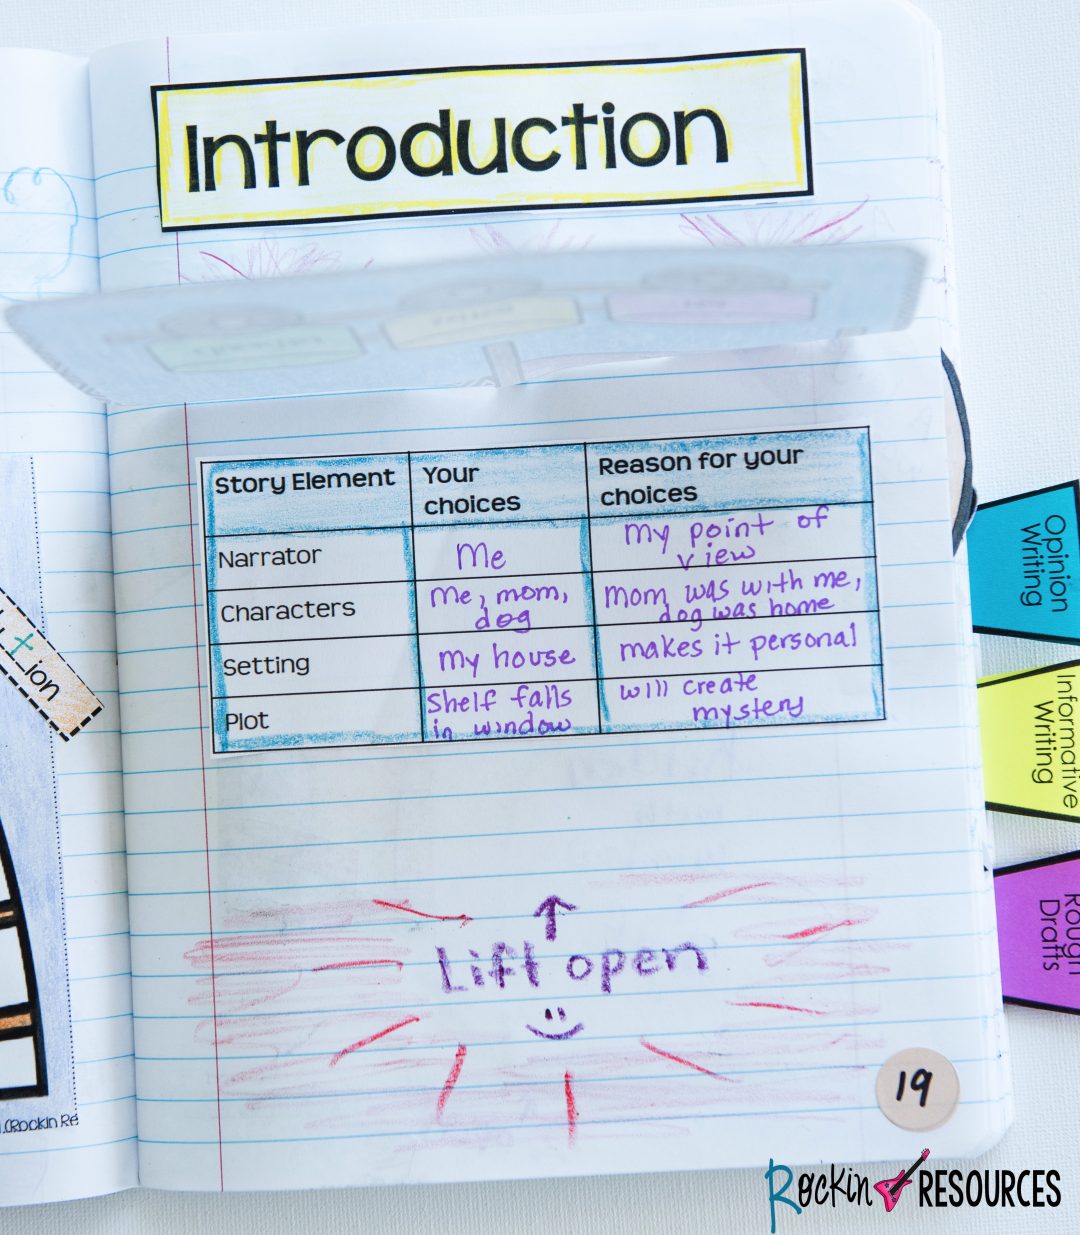 Introduction
Story Element
Your
choices
Reason for your
choices
Narrator
Me
my point of
view
Characters
me, mom,
dog
mom was with me,
dog was home
Setting
my house
makes it personal
Plot
Shelf falls
in window
will create
mystery
Lift open
19
ion
Opinion
Writing
Informative
Writing
Rough
Drafts
Rockin RESOURCES